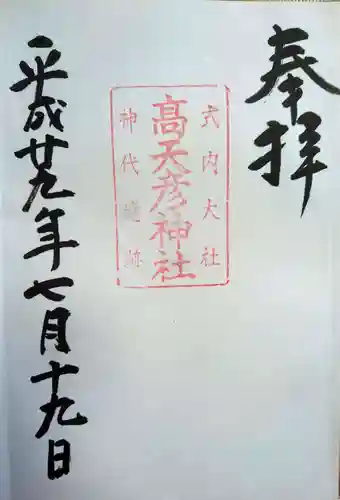 奉拝
式内大社
髙天彦神社
神代遺跡
平成廿九年七月十九日